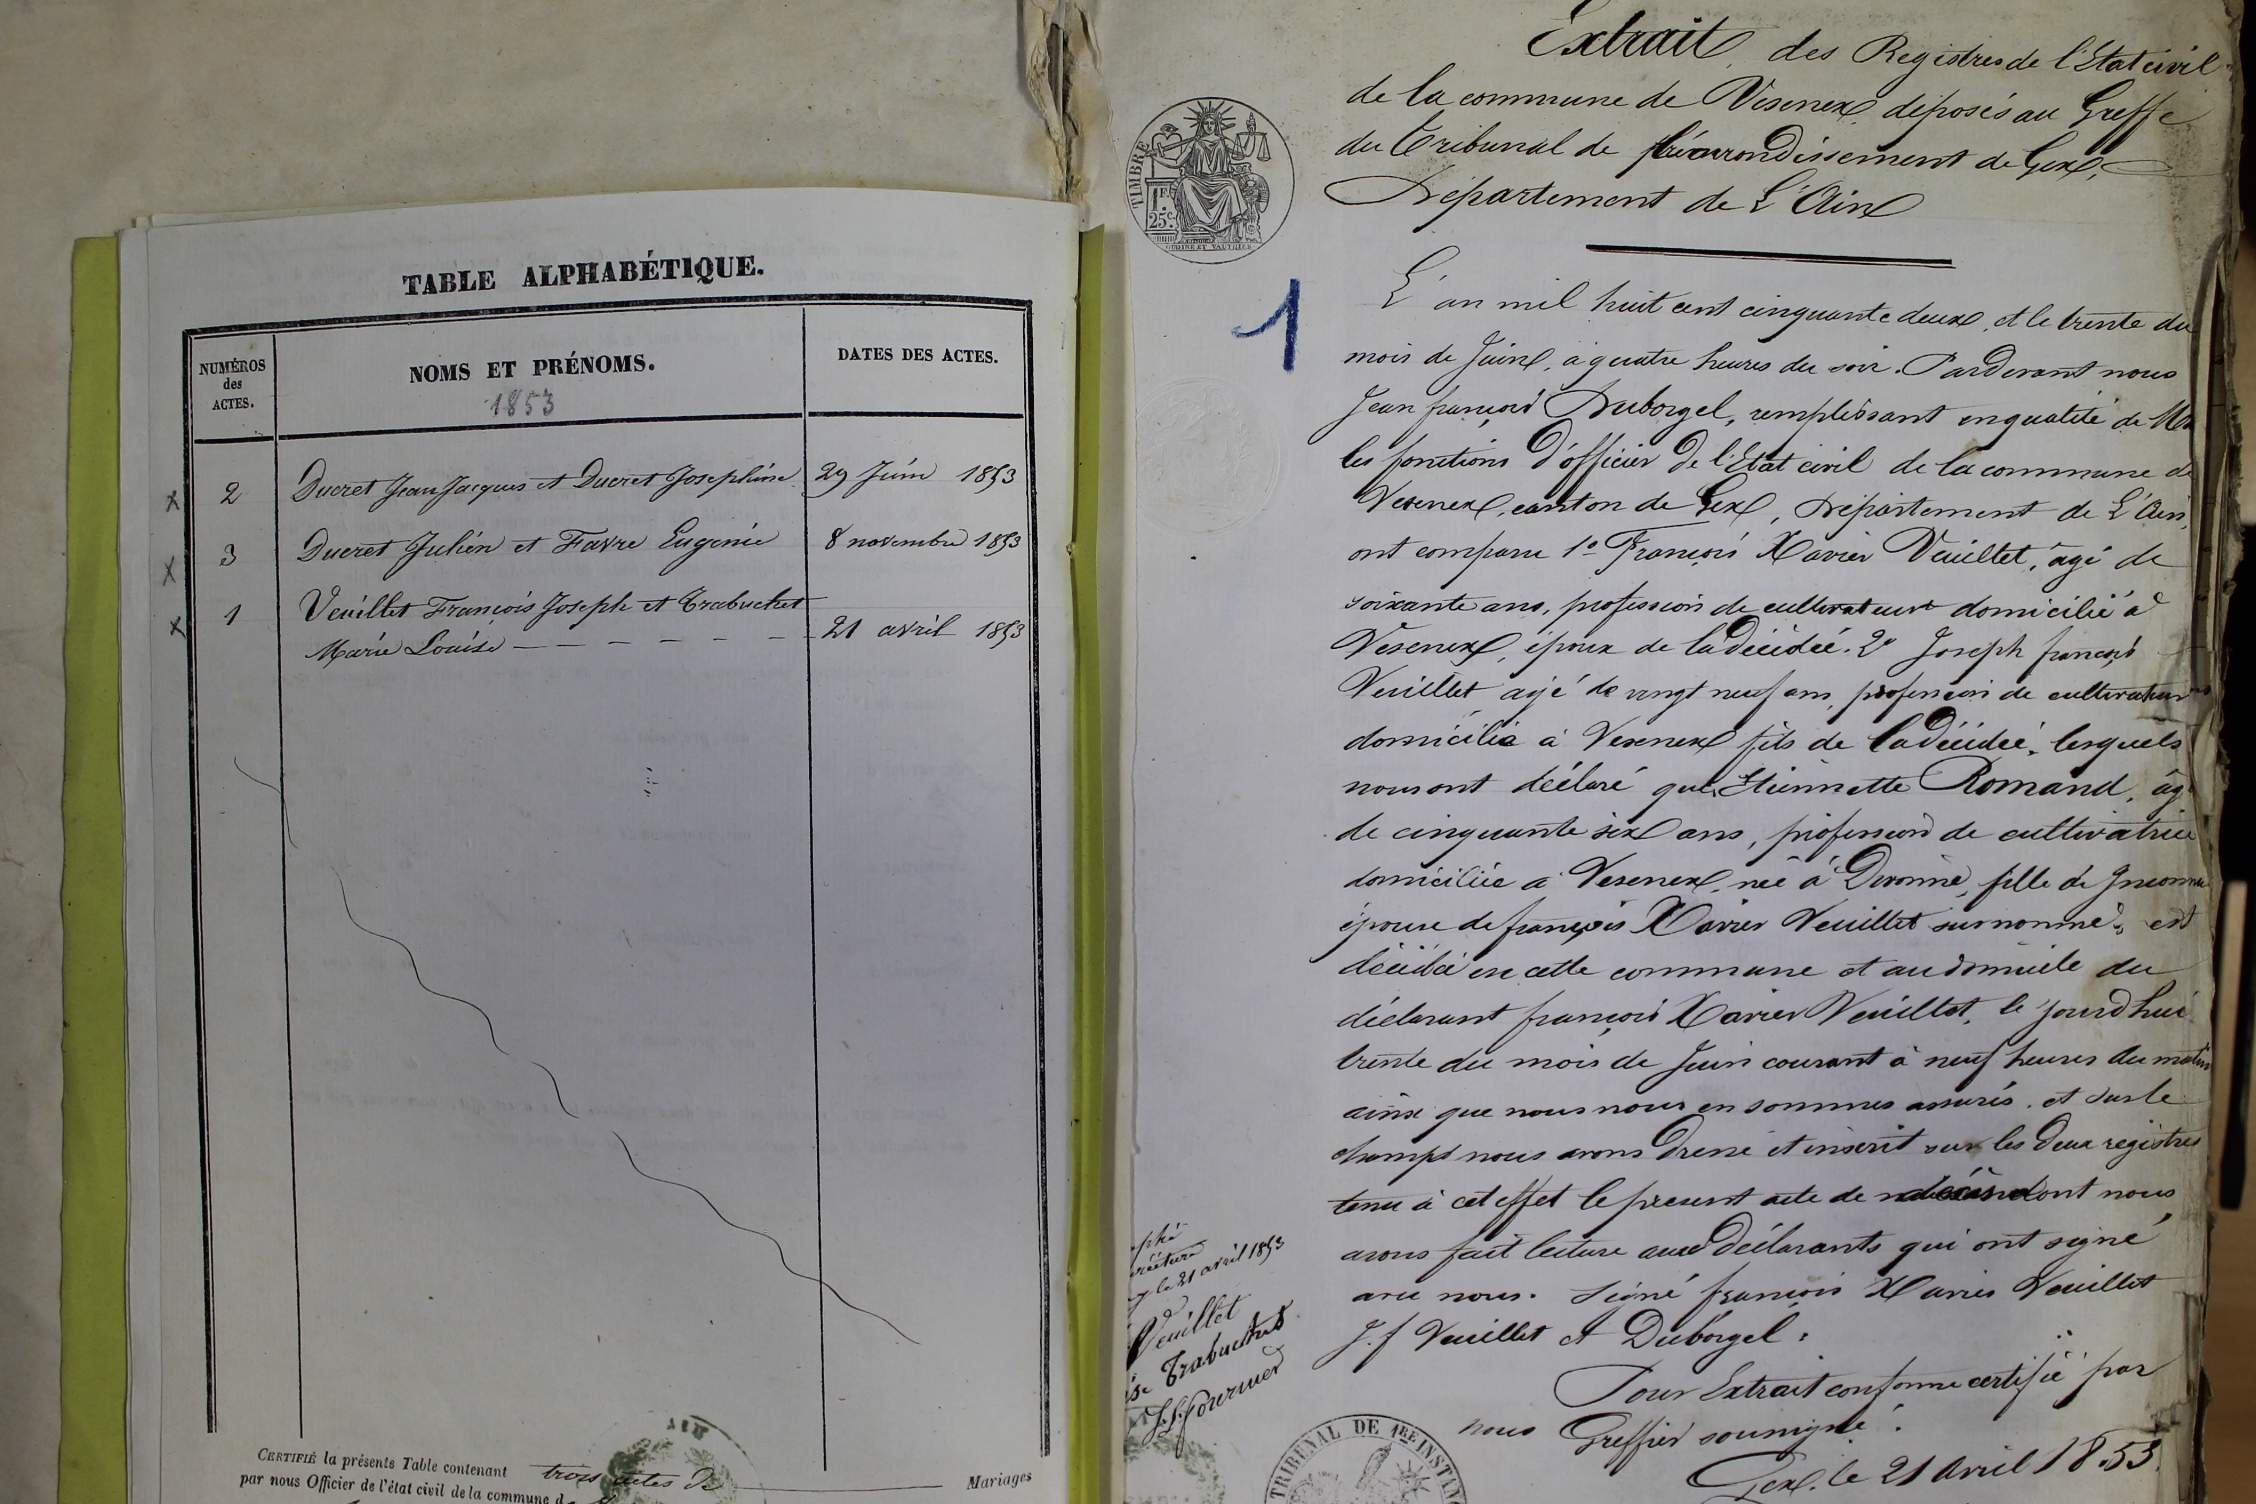 TABLE ALPHABÉTIQUE.
NUMÉROS des ACTES.
NOMS ET PRÉNOMS.
1853
DATES DES ACTES.
x 2 Ducret Jean Jacques et Ducret Josephine 29 Juin 1853
x 3 Ducret Julien et Favre Eugenie 8 novembre 1853
x 1 Veuillet François Joseph et Trabuchet
Marie Louise — — — — — — 21 avril 1853
CERTIFIÉ la présente Table contenant trois actes de Mariages
par nous Officier de l'état civil de la commune d
Extrait des Registres de l'Etat civil
de la commune de Vesenex déposés au Greffe
du Tribunal de l'arrondissement de Gex,
Département de L'Ain
TIMBRE
1F.
25c.
1
L'an mil huit cent cinquante deux, et le trente du
mois de Juin, à quatre heures du soir. Pardevant nous
Jean françois Duborgel, remplissant en qualité de
les fonctions d'officier de l'Etat civil de la commune de
Vesenex, canton de Gex, Département de L'Ain,
ont comparu 1° François Xavier Veuillet, âgé de
soixante ans, profession de cultivateur domicilié à
Vesenex, époux de la décédée. 2° Joseph françois
Veuillet agé de vingt neuf ans, profession de cultivateur
domicilié à Vesenex fils de la décédée, lesquels
nous ont déclaré que Etiennette Romand, âgé
de cinquante six ans, profession de cultivatrice
domiciliée à Vesenex, née à Divonne, fille de
épouse de françois Xavier Veuillet surnommé, est
décédée en cette commune et au domicile du
déclarant françois Xavier Veuillet, le jourd'hui
trente du mois de Juin courant à neuf heures du matin
ainsi que nous nous en sommes assurés. et sur le
champs nous avons dressé et inscrit sur les deux registres
tenu à cet effet le present acte de décès dont nous
avons fait lecture aux déclarants qui ont signé
avec nous. Signé françois Xavier Veuillet
J. f Veuillet et Duborgel.
Pour Extrait conforme certifié par
nous Greffier soussigné.
Gex, le 21 Avril 1853.
le 21 avril 1853
Veuillet
Trabuchet
Fournier
TRIBUNAL DE 1RE INSTANC